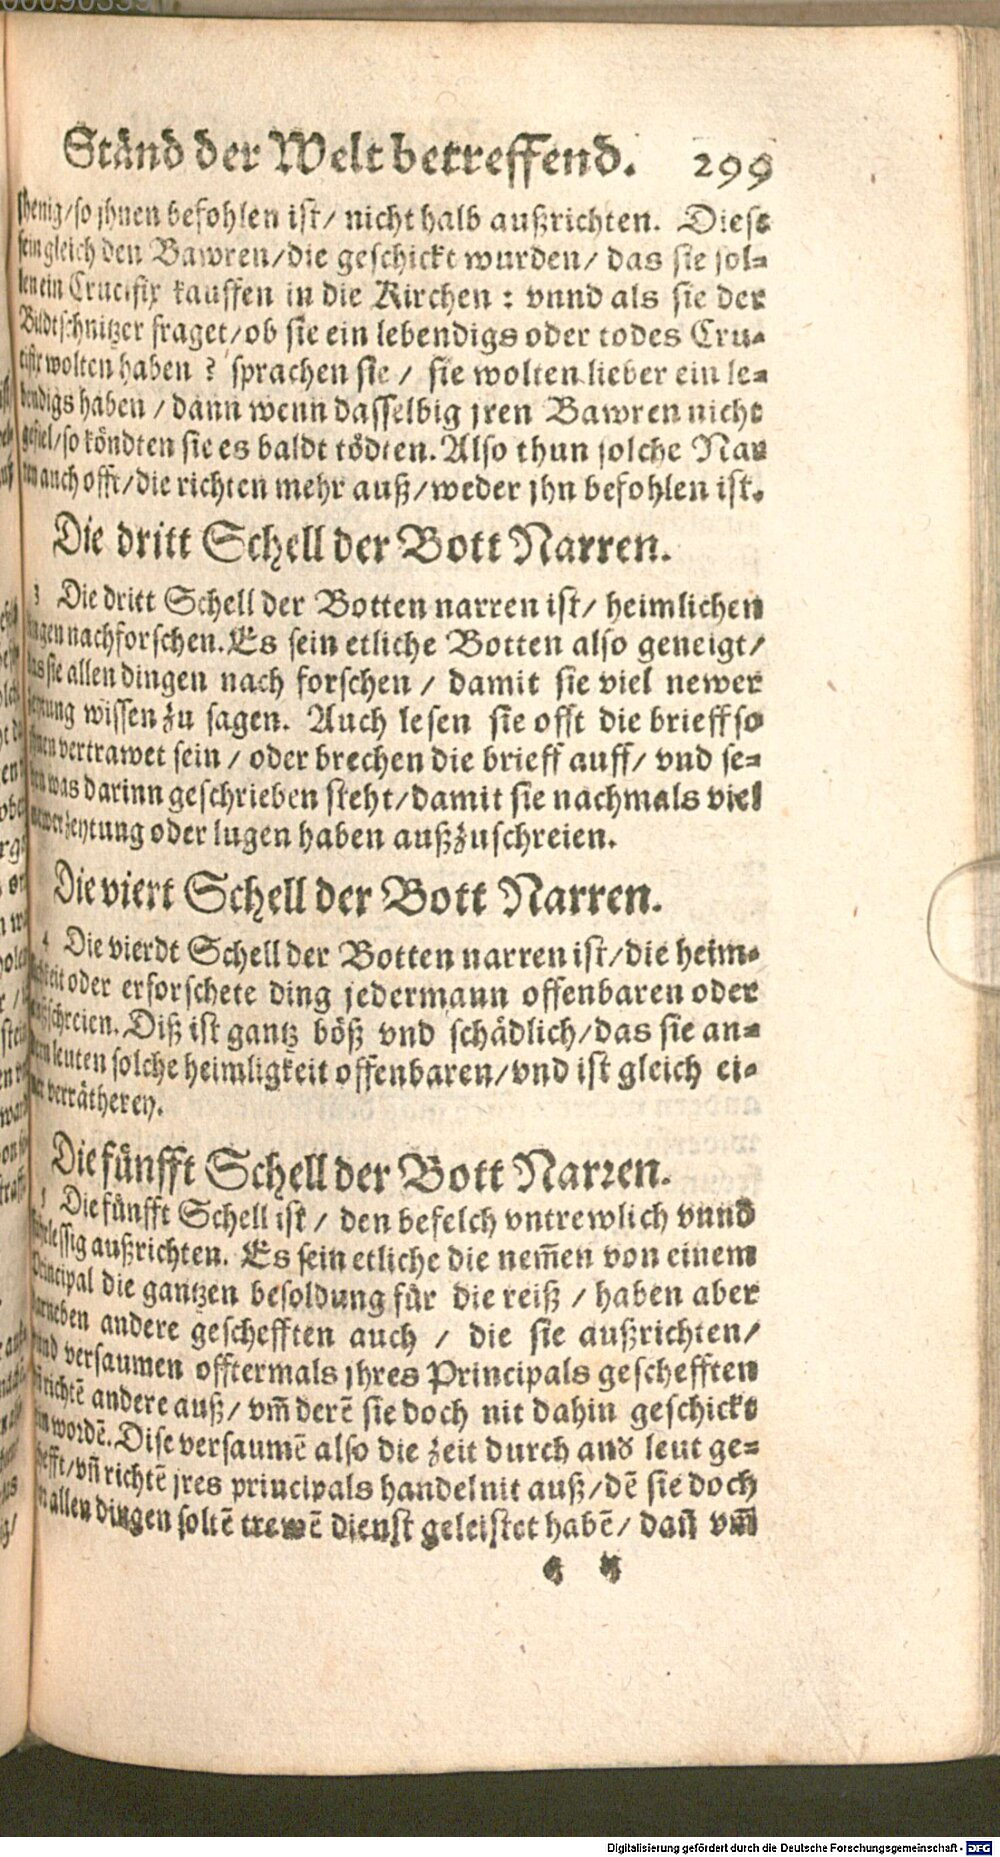 Ständ der Welt betreffend. 299
jhenig/so jhnen befohlen ist/ nicht halb außrichten. Diese
sein gleich den Bawren/die geschickt wurden/ das sie sol-
len ein Crucifix kauffen in die Kirchen : vnnd als sie der
Bildtschnitzer fraget/ob sie ein lebendigs oder todes Cru-
cifix wolten haben ? sprachen sie / sie wolten lieber ein le-
bendigs haben / dann wenn dasselbig jren Bawren nicht
gefiel/so köndten sie es baldt tödten. Also thun solche Nar
ren auch offt/die richten mehr auß/weder jhn befohlen ist.
Die dritt Schell der Bott Narren.
3 Die dritt Schell der Botten narren ist/ heimlichen
dingen nachforschen. Es sein etliche Botten also geneigt/
das sie allen dingen nach forschen / damit sie viel newer
zeytung wissen zu sagen. Auch lesen sie offt die brieff so
jhnen vertrawet sein / oder brechen die brieff auff/ vnd se-
hen was darinn geschrieben steht/damit sie nachmals viel
newer zeytung oder lugen haben außzuschreien.
Die viert Schell der Bott Narren.
4 Die vierdt Schell der Botten narren ist/die heim-
ligkeit oder erforschete ding jedermann offenbaren oder
außschreien. Diß ist gantz böß vnd schädlich/das sie an-
dern leuten solche heimligkeit offenbaren/vnd ist gleich ei-
ner verrätherey.
Die fünfft Schell der Bott Narren.
5 Die fünfft Schell ist / den befelch vntrewlich vnnd
außrichten. Es sein etliche die nem̃en von einem
Principal die gantzen besoldung für die reiß / haben aber
darneben andere geschefften auch / die sie außrichten/
vnd versaumen offtermals jhres Principals geschefften
richtē andere auß/ vm̃ derē sie doch nit dahin geschickt
wordē. Dise versaumē also die zeit durch and leut ge-
schefft/vñ richtē jres principals handel nit auß/dē sie doch
in allen dingen soltē trewē dienst geleistet habē/ dañ vm̃